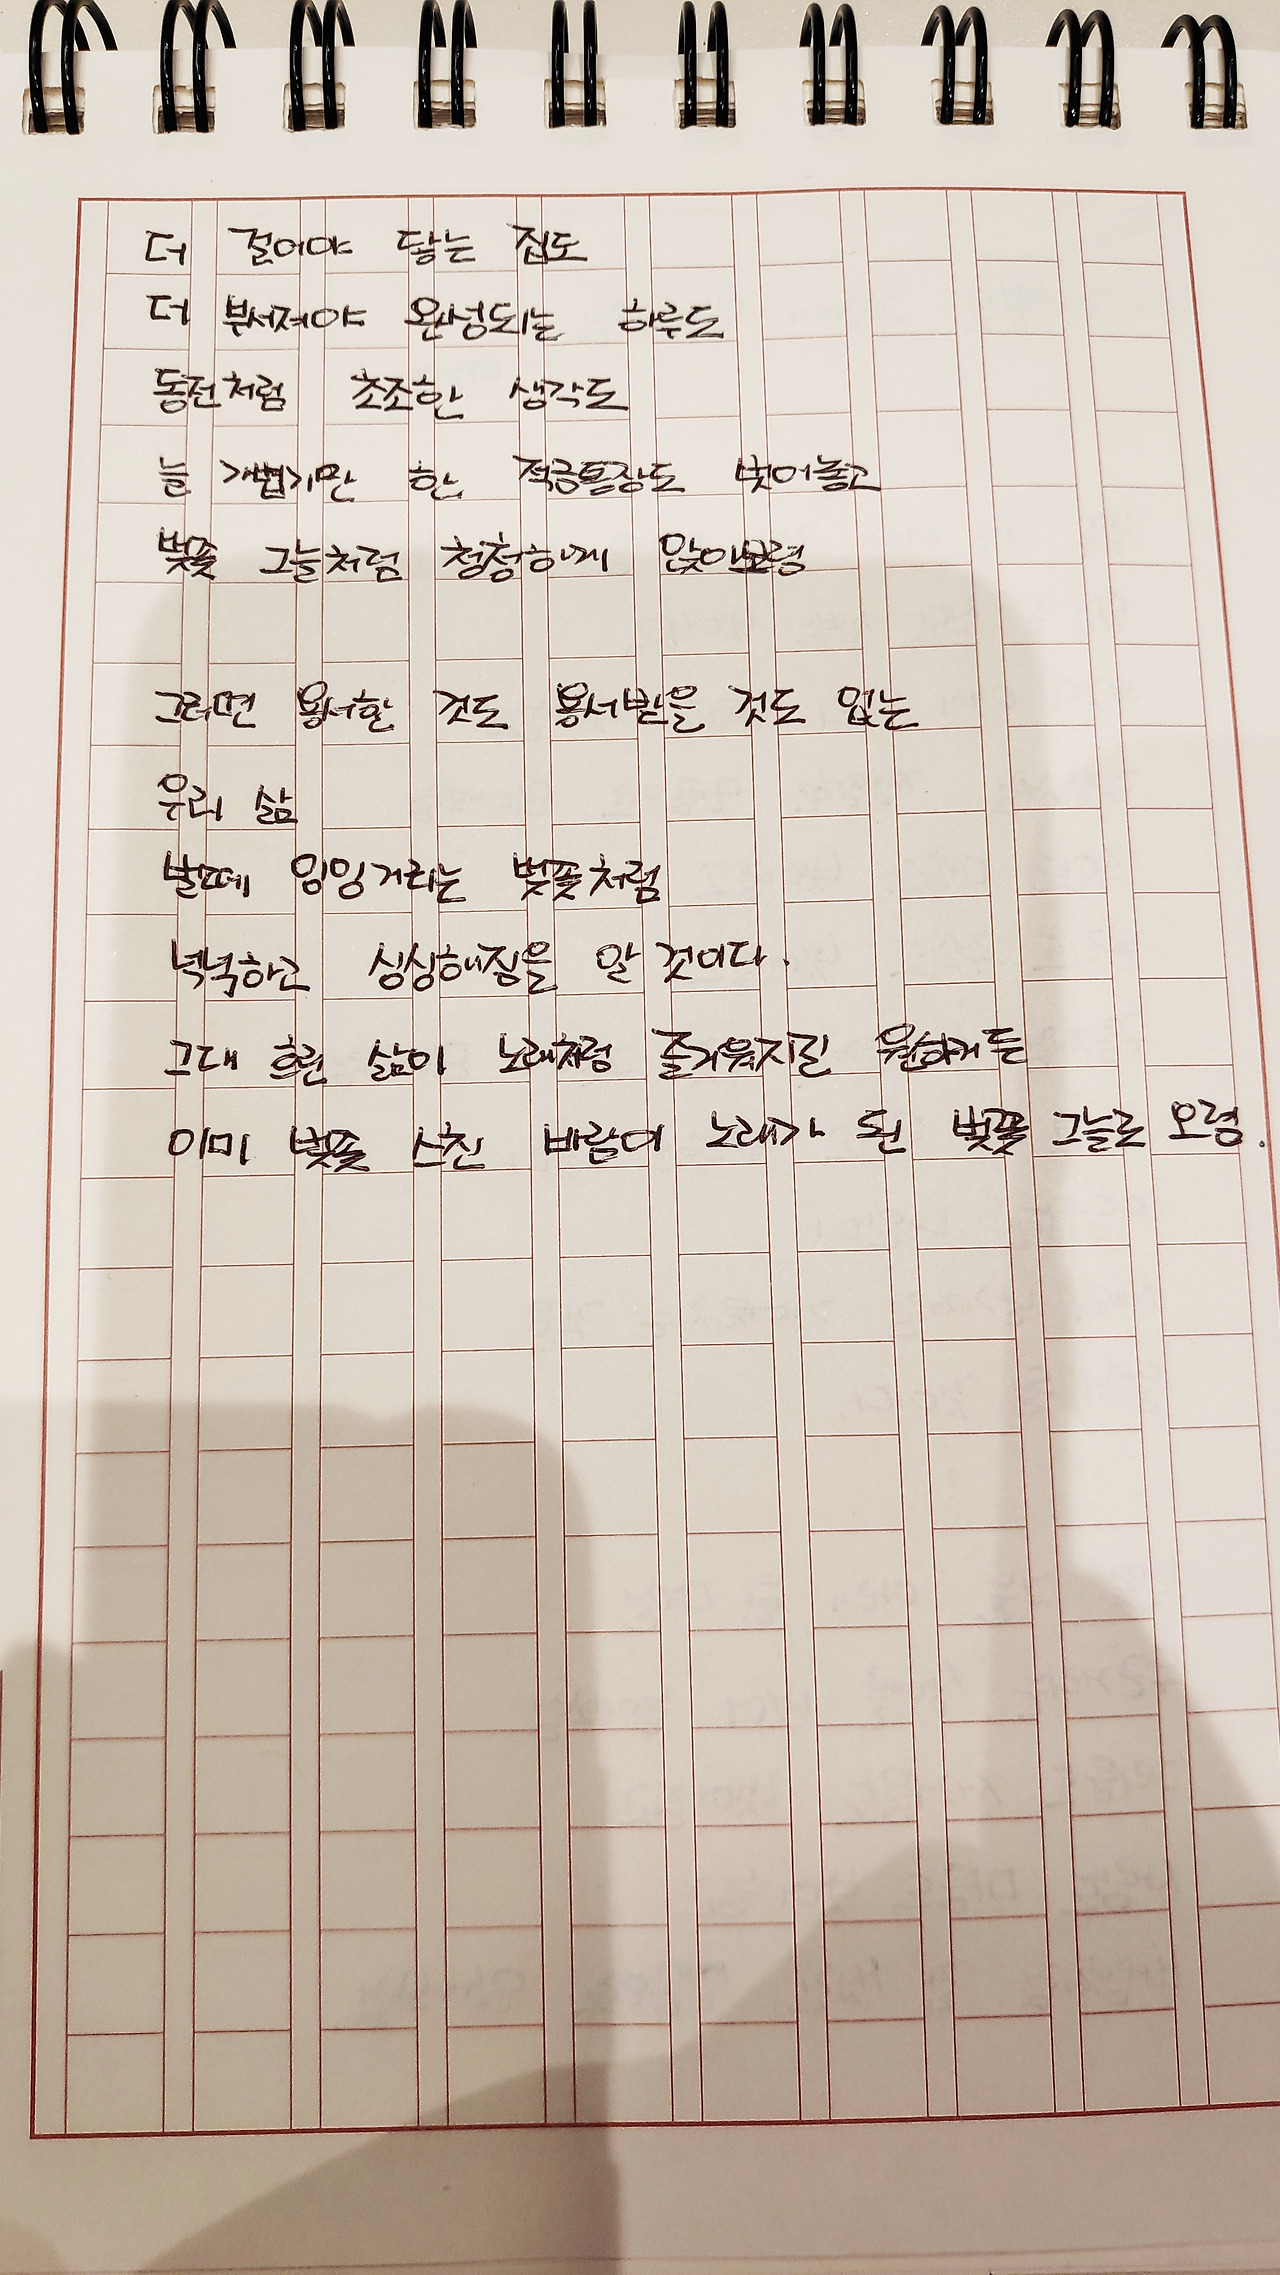 더 걸어야 닿는 집도
더 부서져야 완성되는 하루도
동전처럼 초조한 생각도
늘 가볍기만 한 적금통장도 벗어놓고
벚꽃 그늘처럼 청청하게 앉아보렴
그러면 용서한 것도 용서받을 것도 없는
우리 삶
벌떼 잉잉거리는 벚꽃처럼
넉넉하고 싱싱해짐을 알 것이다.
그대 흐린 삶이 노래처럼 즐거워지길 원하거든
이미 벚꽃 스친 바람이 노래가 된 벚꽃 그늘로 오렴.